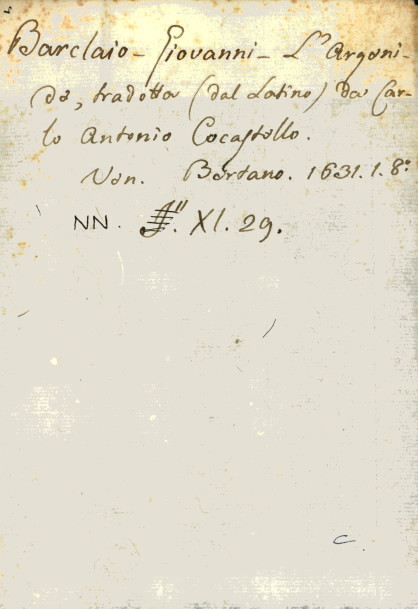 Barclaio - Giovanni - L'Argeni-
de, tradotta (dal Latino) da Car-
lo Antonio Cocastello.
Ven. Bertano. 1631. 1. 8.°
NN. XI. 29.
C